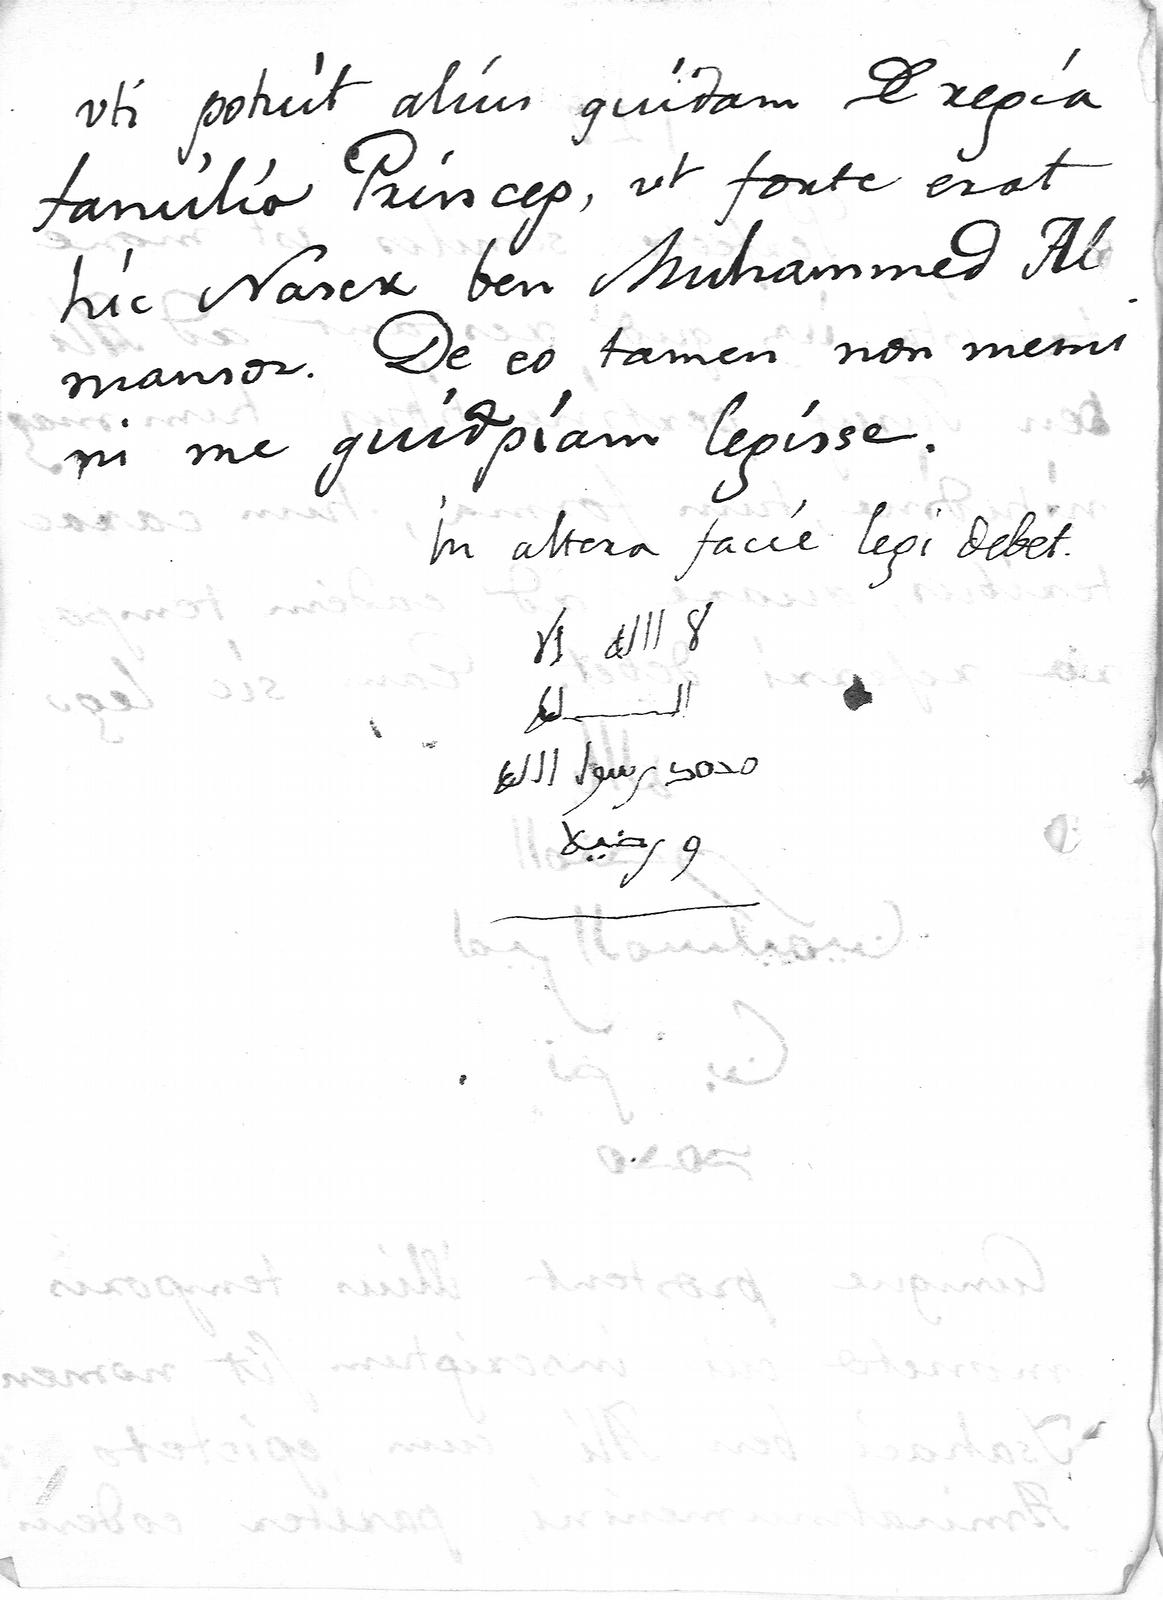 vti potuit alius quidam E regia
familia Princep, vt forte erat
hic Naser ben Muhammed Al
mansor. De eo tamen non memi
ni me quidpiam legisse.
In altera facie legi debet.
لا الله الا
الله
محمد رسول الله